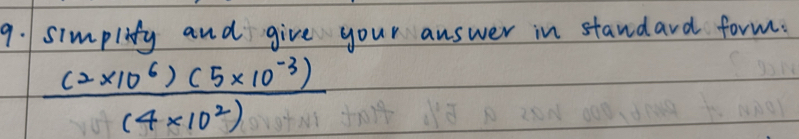 9. Simplify and give your answer in standard form:
(2×10⁶) (5×10⁻³)
(4×10²)